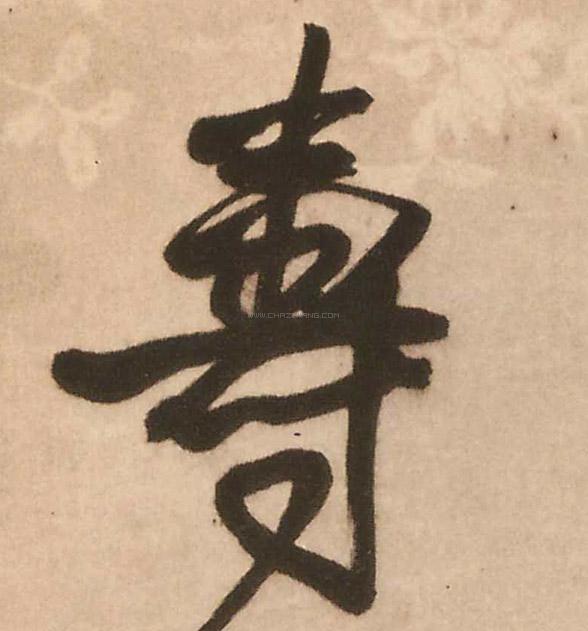 壽
WWW.CHAZIWANG.COM